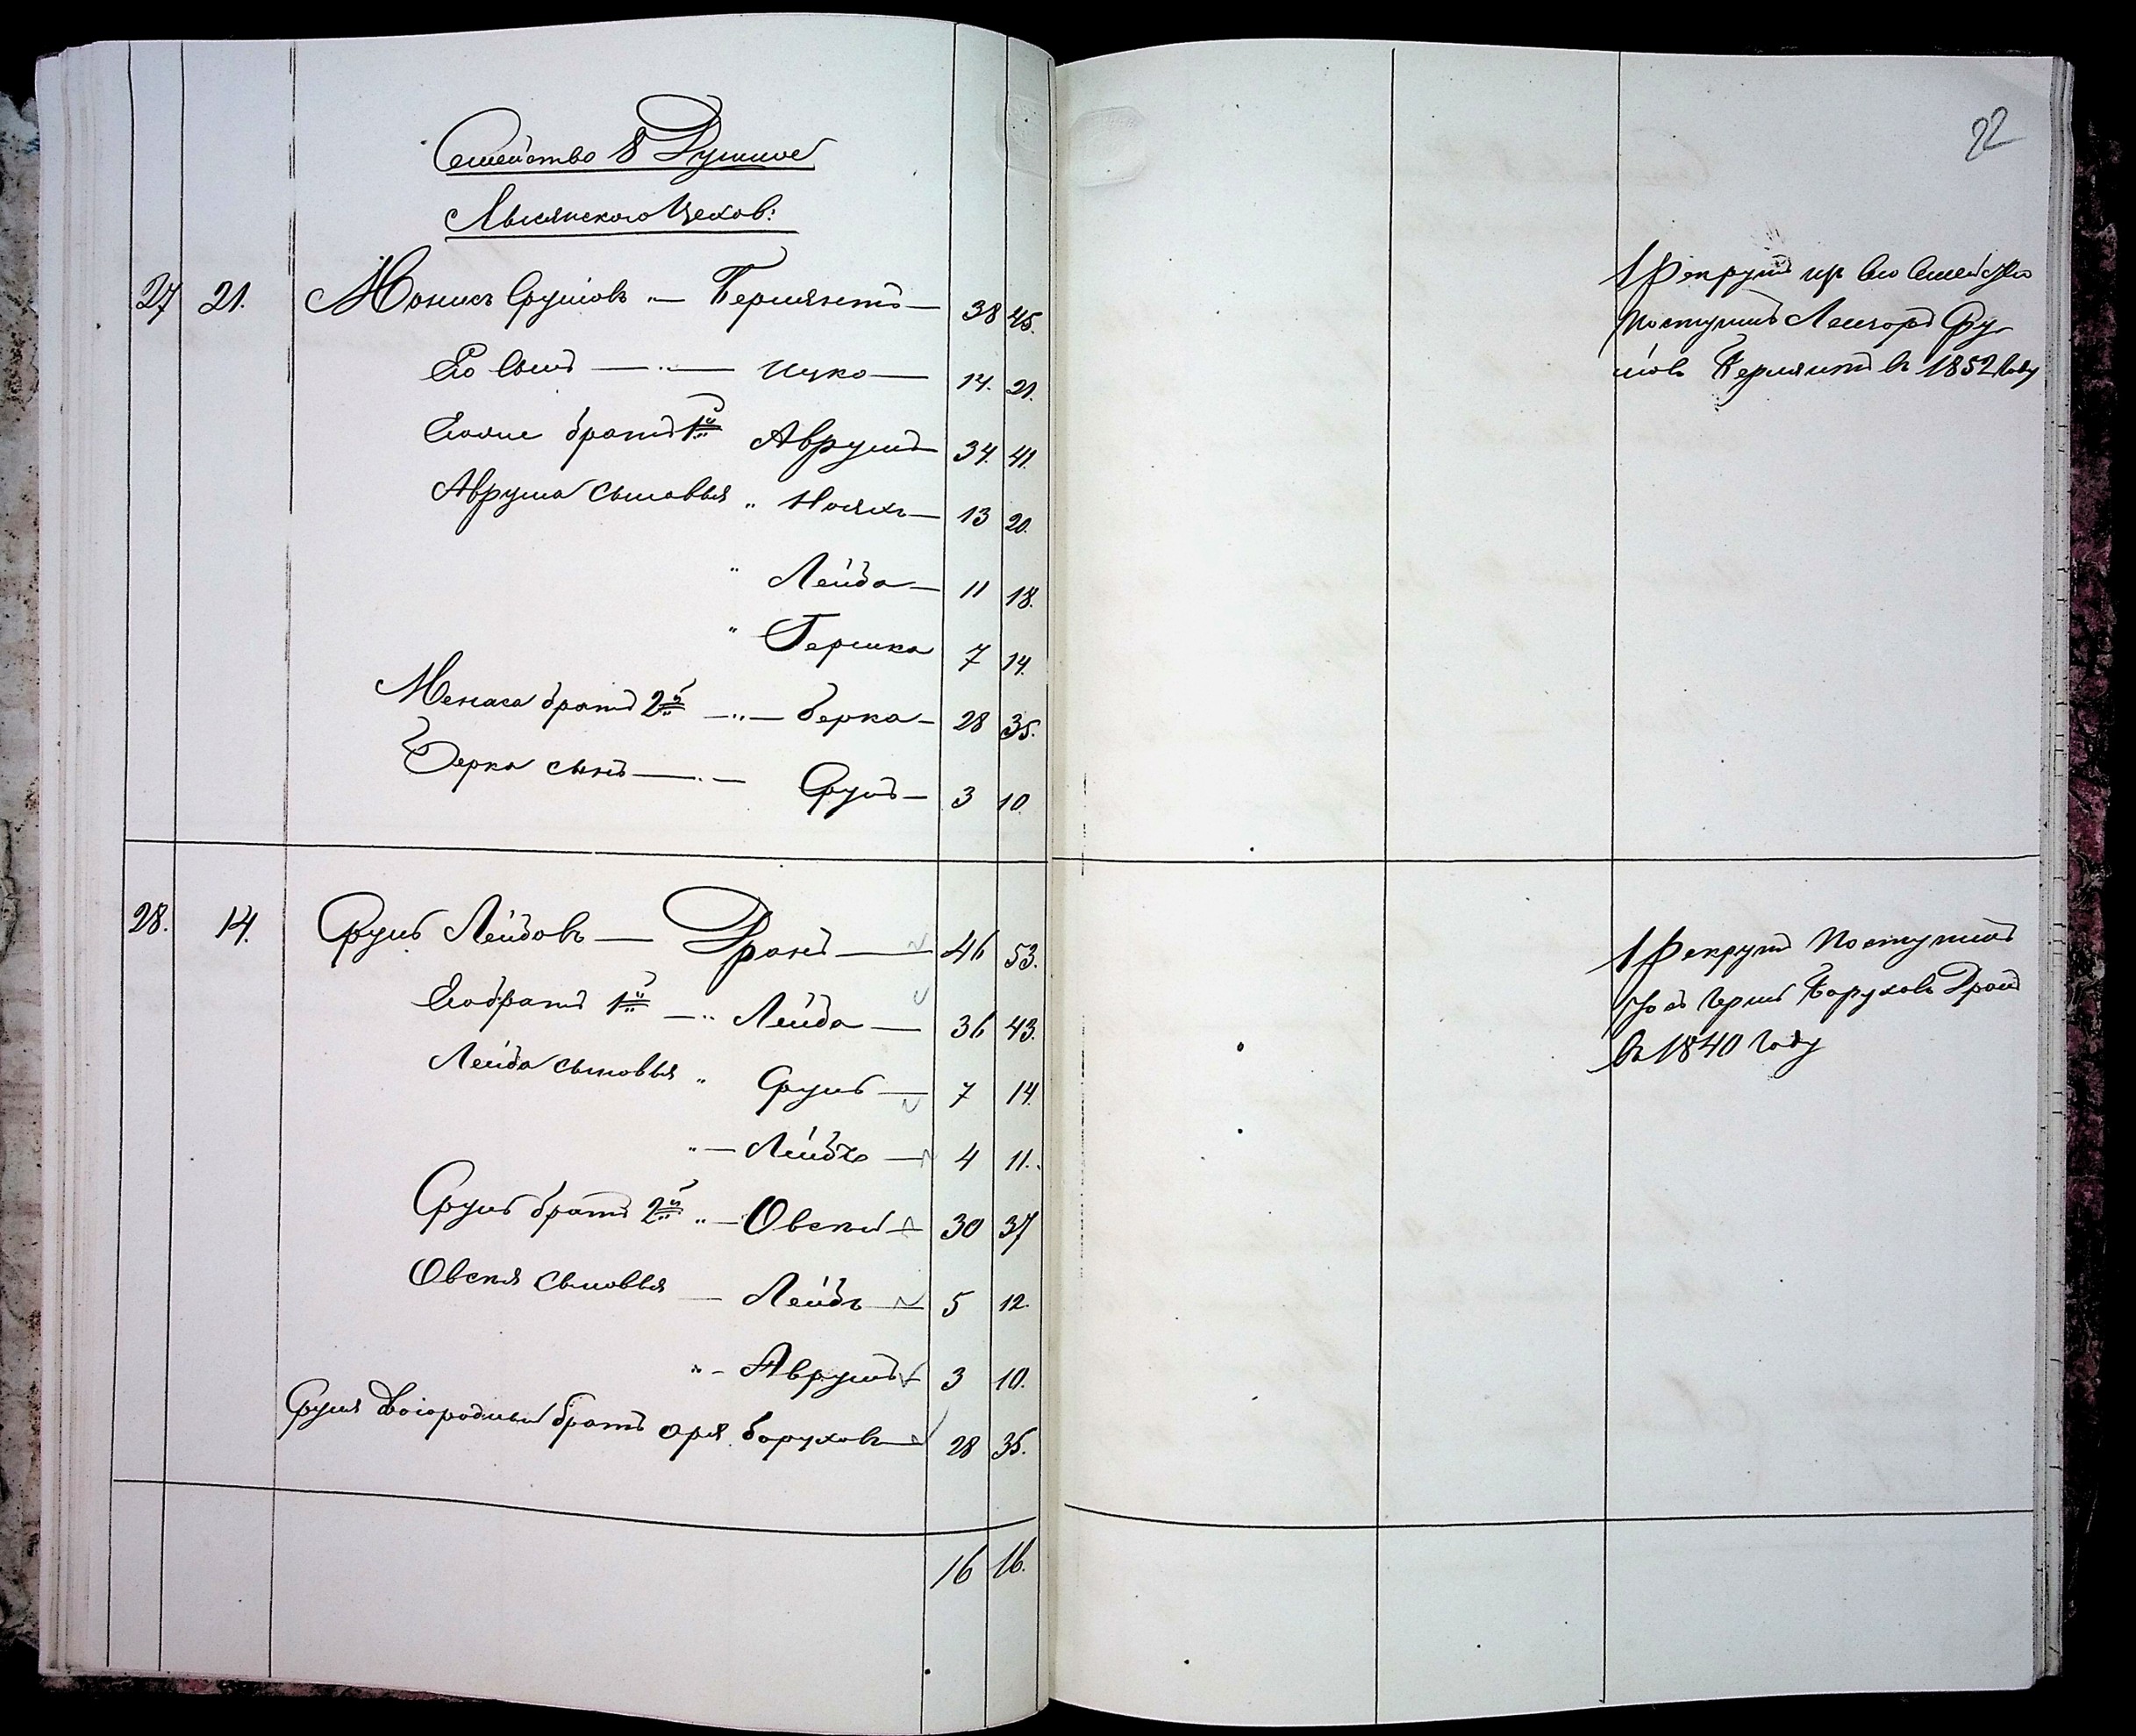 22
Семейство 8 Душное
Лысянского Цехов:
27 21. Монисъ Сруловъ „— Бершянтъ — 38 45.
Его Сынъ —„— Ицко — 14. 21.
Егоже братъ 1й Аврумъ — 34. 41.
Аврума Сыновья „ Нояхъ — 13 20.
„ Лейба — 11 18.
„ Гершко 7 14.
Менаса братъ 2й —„— Берко — 28 35.
Берка сынъ —„— Сруль — 3 10
28. 14. Сруль Лейбовъ — Дранъ — 46 53.
Его братъ 1й —„ Лейба — 36 43.
Лейба сыновья „ Сруль — 7 14.
„— Лейбъ — 4 11.
Сруль братъ 2й „— Овсей — 30 37
Овсея Сыновья — Лейбъ — 5 12.
„— Аврумъ 3 10.
Сруля двоюродный братъ Оря Боруховъ — 28 35.
16 16.
1 Рекрутъ изъ Его Семейства
поступилъ Сру-
ловъ Бершянтъ въ 1852 Году
1 Рекрутъ Поступилъ
Боруховъ Дранъ
въ 1840 Году